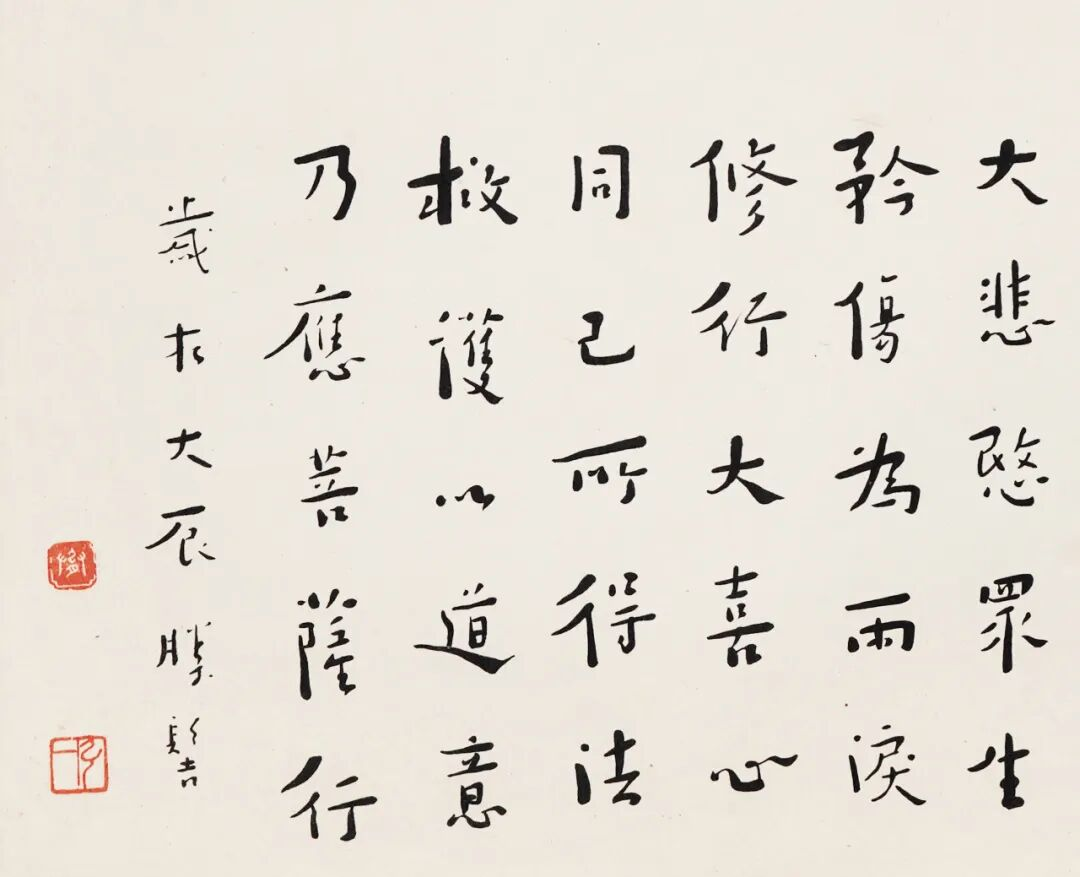 大悲愍眾生
矜傷為雨淚
修行大喜心
同己所得法
救護以道意
乃應菩薩行
歲在大辰勝髻